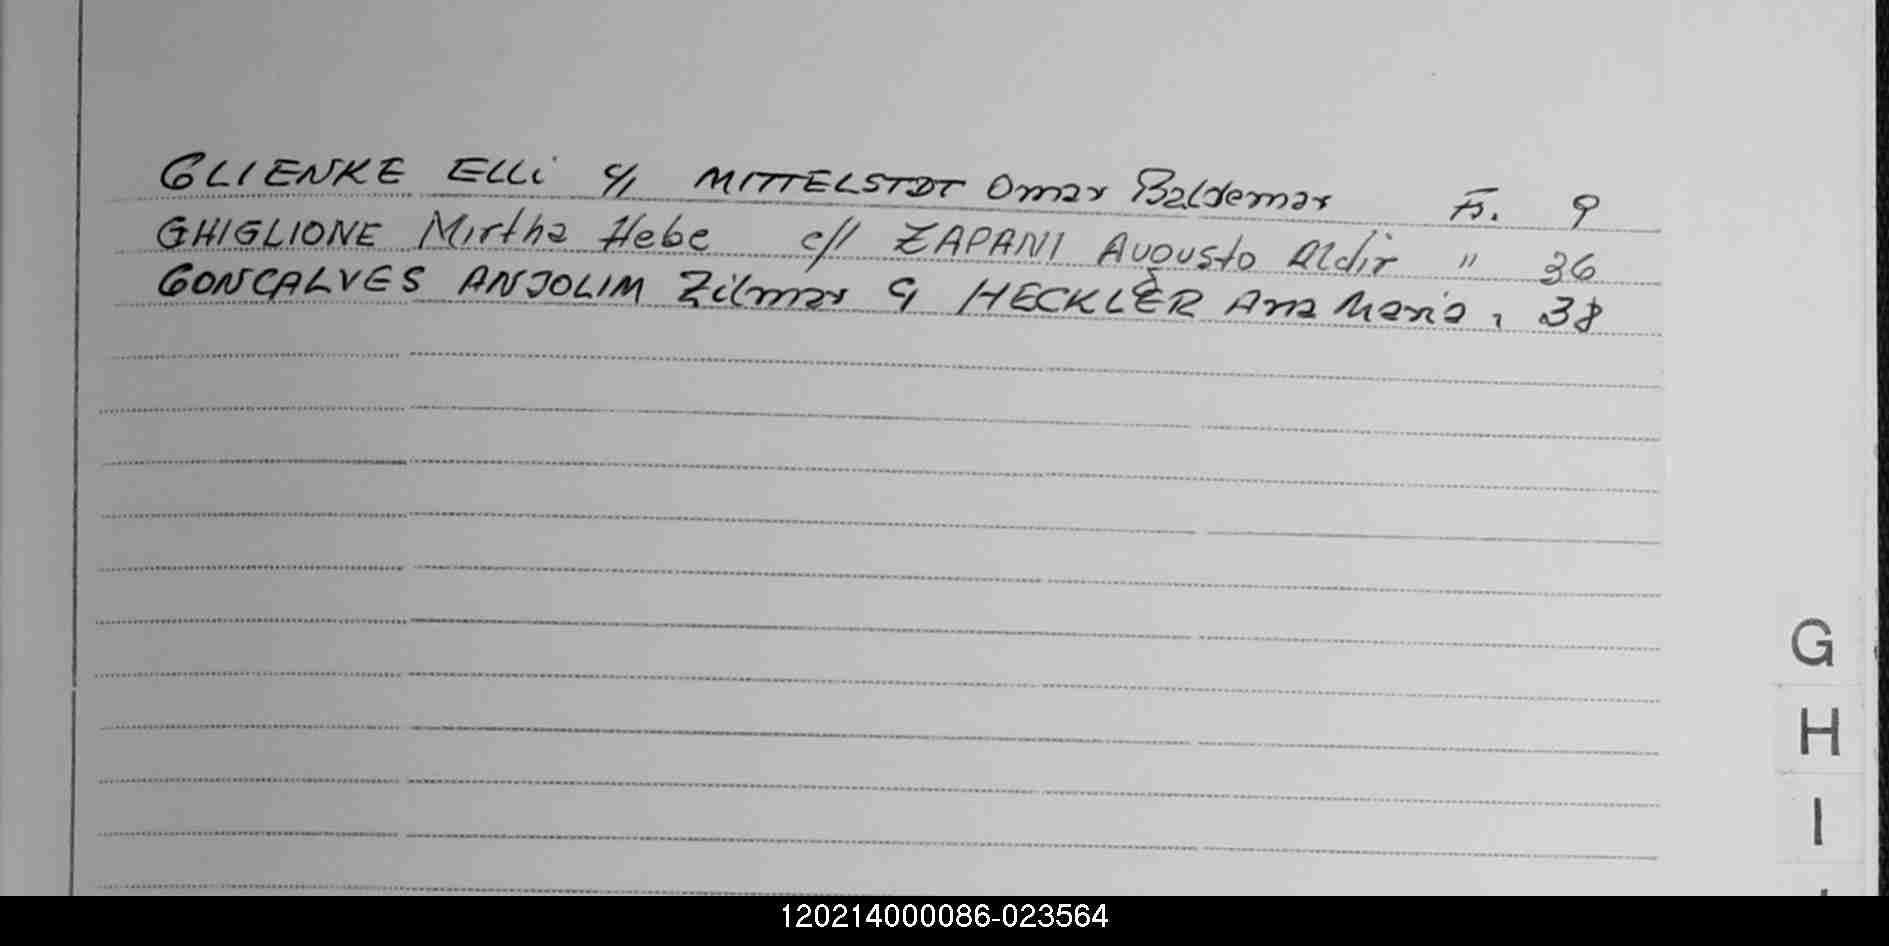 GLIENKE ELLi c/ MITTELSTDT Omar Baldemar Fs. 9
GHIGLIONE Mirtha Hebe c// ZAPANI Augusto Aldir " 36
GONCALVES ANJOLIM Zilmar c/ HECKLER Ana Maria , 38
G
H
I
120214000086-023564